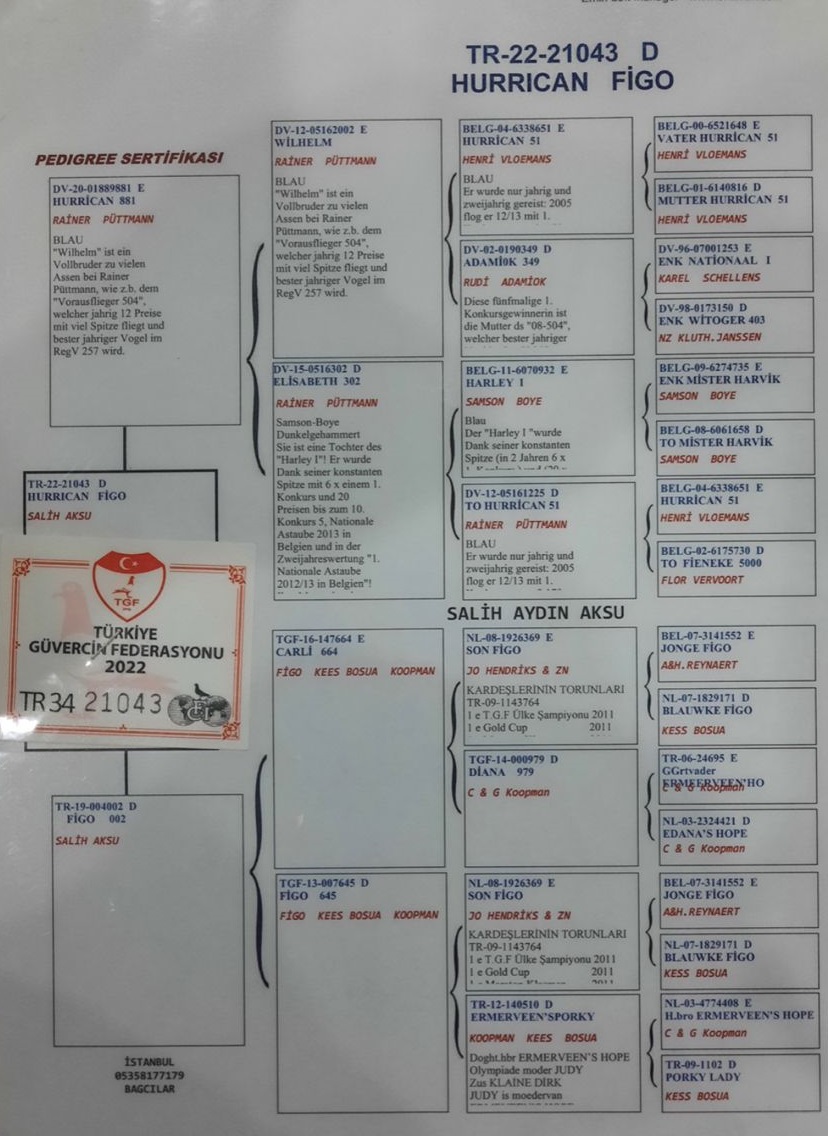 TR-22-21043 D
HURRICAN FİGO
PEDIGREE SERTİFİKASI
DV-20-01889881 E
HURRİCAN 881
RAİNER PÜTTMANN
BLAU
"Wilhelm" ist ein
Vollbruder zu vielen
Assen bei Rainer
Püttmann, wie z.b. dem
"Vorausflieger 504",
welcher jahrig 12 Preise
mit viel Spitze fliegt und
bester jahriger Vogel im
RegV 257 wird.
TR-22-21043 D
HURRICAN FİGO
SALİH AKSU
TGF
TÜRKİYE
GÜVERCİN FEDERASYONU
2022
TR34 21043
TR-19-004002 D
FİGO 002
SALİH AKSU
İSTANBUL
05358177179
BAGCILAR
DV-12-05162002 E
WİLHELM
RAİNER PÜTTMANN
BLAU
"Wilhelm" ist ein
Vollbruder zu vielen
Assen bei Rainer
Püttmann, wie z.b. dem
"Vorausflieger 504",
welcher jahrig 12 Preise
mit viel Spitze fliegt und
bester jahriger Vogel im
RegV 257 wird.
DV-15-0516302 D
ELİSABETH 302
RAİNER PÜTTMANN
Samson-Boye
Dunkelgehammert
Sie ist eine Tochter des
"Harley I"! Er wurde
Dank seiner konstanten
Spitze mit 6 x einem 1.
Konkurs und 20
Preisen bis zum 10.
Konkurs 5, Nationale
Astaube 2013 in
Belgien und in der
Zweijahreswertung "1.
Nationale Astaube
2012/13 in Belgien"!
SALİH AYDIN AKSU
TGF-16-147664 E
CARLİ 664
FİGO KEES BOSUA KOOPMAN
TGF-13-007645 D
FİGO 645
FİGO KEES BOSUA KOOPMAN
BELG-04-6338651 E
HURRİCAN 51
HENRİ VLOEMANS
BLAU
Er wurde nur jahrig und
zweijahrig gereist: 2005
flog er 12/13 mit 1.
DV-02-0190349 D
ADAMİOK 349
RUDİ ADAMİOK
Diese fünfmalige 1.
Konkursgewinnerin ist
die Mutter ds "08-504",
welcher bester jahriger
BELG-11-6070932 E
HARLEY I
SAMSON BOYE
Blau
Der "Harley I "wurde
Dank seiner konstanten
Spitze (in 2 Jahren 6 x
DV-12-05161225 D
TO HURRİCAN 51
RAİNER PÜTTMANN
BLAU
Er wurde nur jahrig und
zweijahrig gereist: 2005
flog er 12/13 mit 1.
NL-08-1926369 E
SON FİGO
JO HENDRİKS & ZN
KARDEŞLERİNİN TORUNLARI
TR-09-1143764
1 e T.G.F Ülke Şampiyonu 2011
1 e Gold Cup 2011
TGF-14-000979 D
DİANA 979
C & G Koopman
NL-08-1926369 E
SON FİGO
JO HENDRİKS & ZN
KARDEŞLERİNİN TORUNLARI
TR-09-1143764
1 e T.G.F Ülke Şampiyonu 2011
1 e Gold Cup 2011
TR-12-140510 D
ERMERVEEN'SPORKY
KOOPMAN KEES BOSUA
Doght.hbr ERMERVEEN'S HOPE
Olympiade moder JUDY
Zus KLAINE DIRK
JUDY is moedervan
BELG-00-6521648 E
VATER HURRİCAN 51
HENRİ VLOEMANS
BELG-01-6140816 D
MUTTER HURRİCAN 51
HENRİ VLOEMANS
DV-96-07001253 E
ENK NATİONAAL I
KAREL SCHELLENS
DV-98-0173150 D
ENK WİTOGER 403
NZ KLUTH.JANSSEN
BELG-09-6274735 E
ENK MİSTER HARVİK
SAMSON BOYE
BELG-08-6061658 D
TO MİSTER HARVİK
SAMSON BOYE
BELG-04-6338651 E
HURRİCAN 51
HENRİ VLOEMANS
BELG-02-6175730 D
TO FİENEKE 5000
FLOR VERVOORT
BEL-07-3141552 E
JONGE FİGO
A&H.REYNAERT
NL-07-1829171 D
BLAUWKE FİGO
KESS BOSUA
TR-06-24695 E
GGrtvader
C & G Koopman
NL-03-2324421 D
EDANA'S HOPE
C & G Koopman
BEL-07-3141552 E
JONGE FİGO
A&H.REYNAERT
NL-07-1829171 D
BLAUWKE FİGO
KESS BOSUA
NL-03-4774408 E
H.bro ERMERVEEN'S HOPE
C & G Koopman
TR-09-1102 D
PORKY LADY
KESS BOSUA